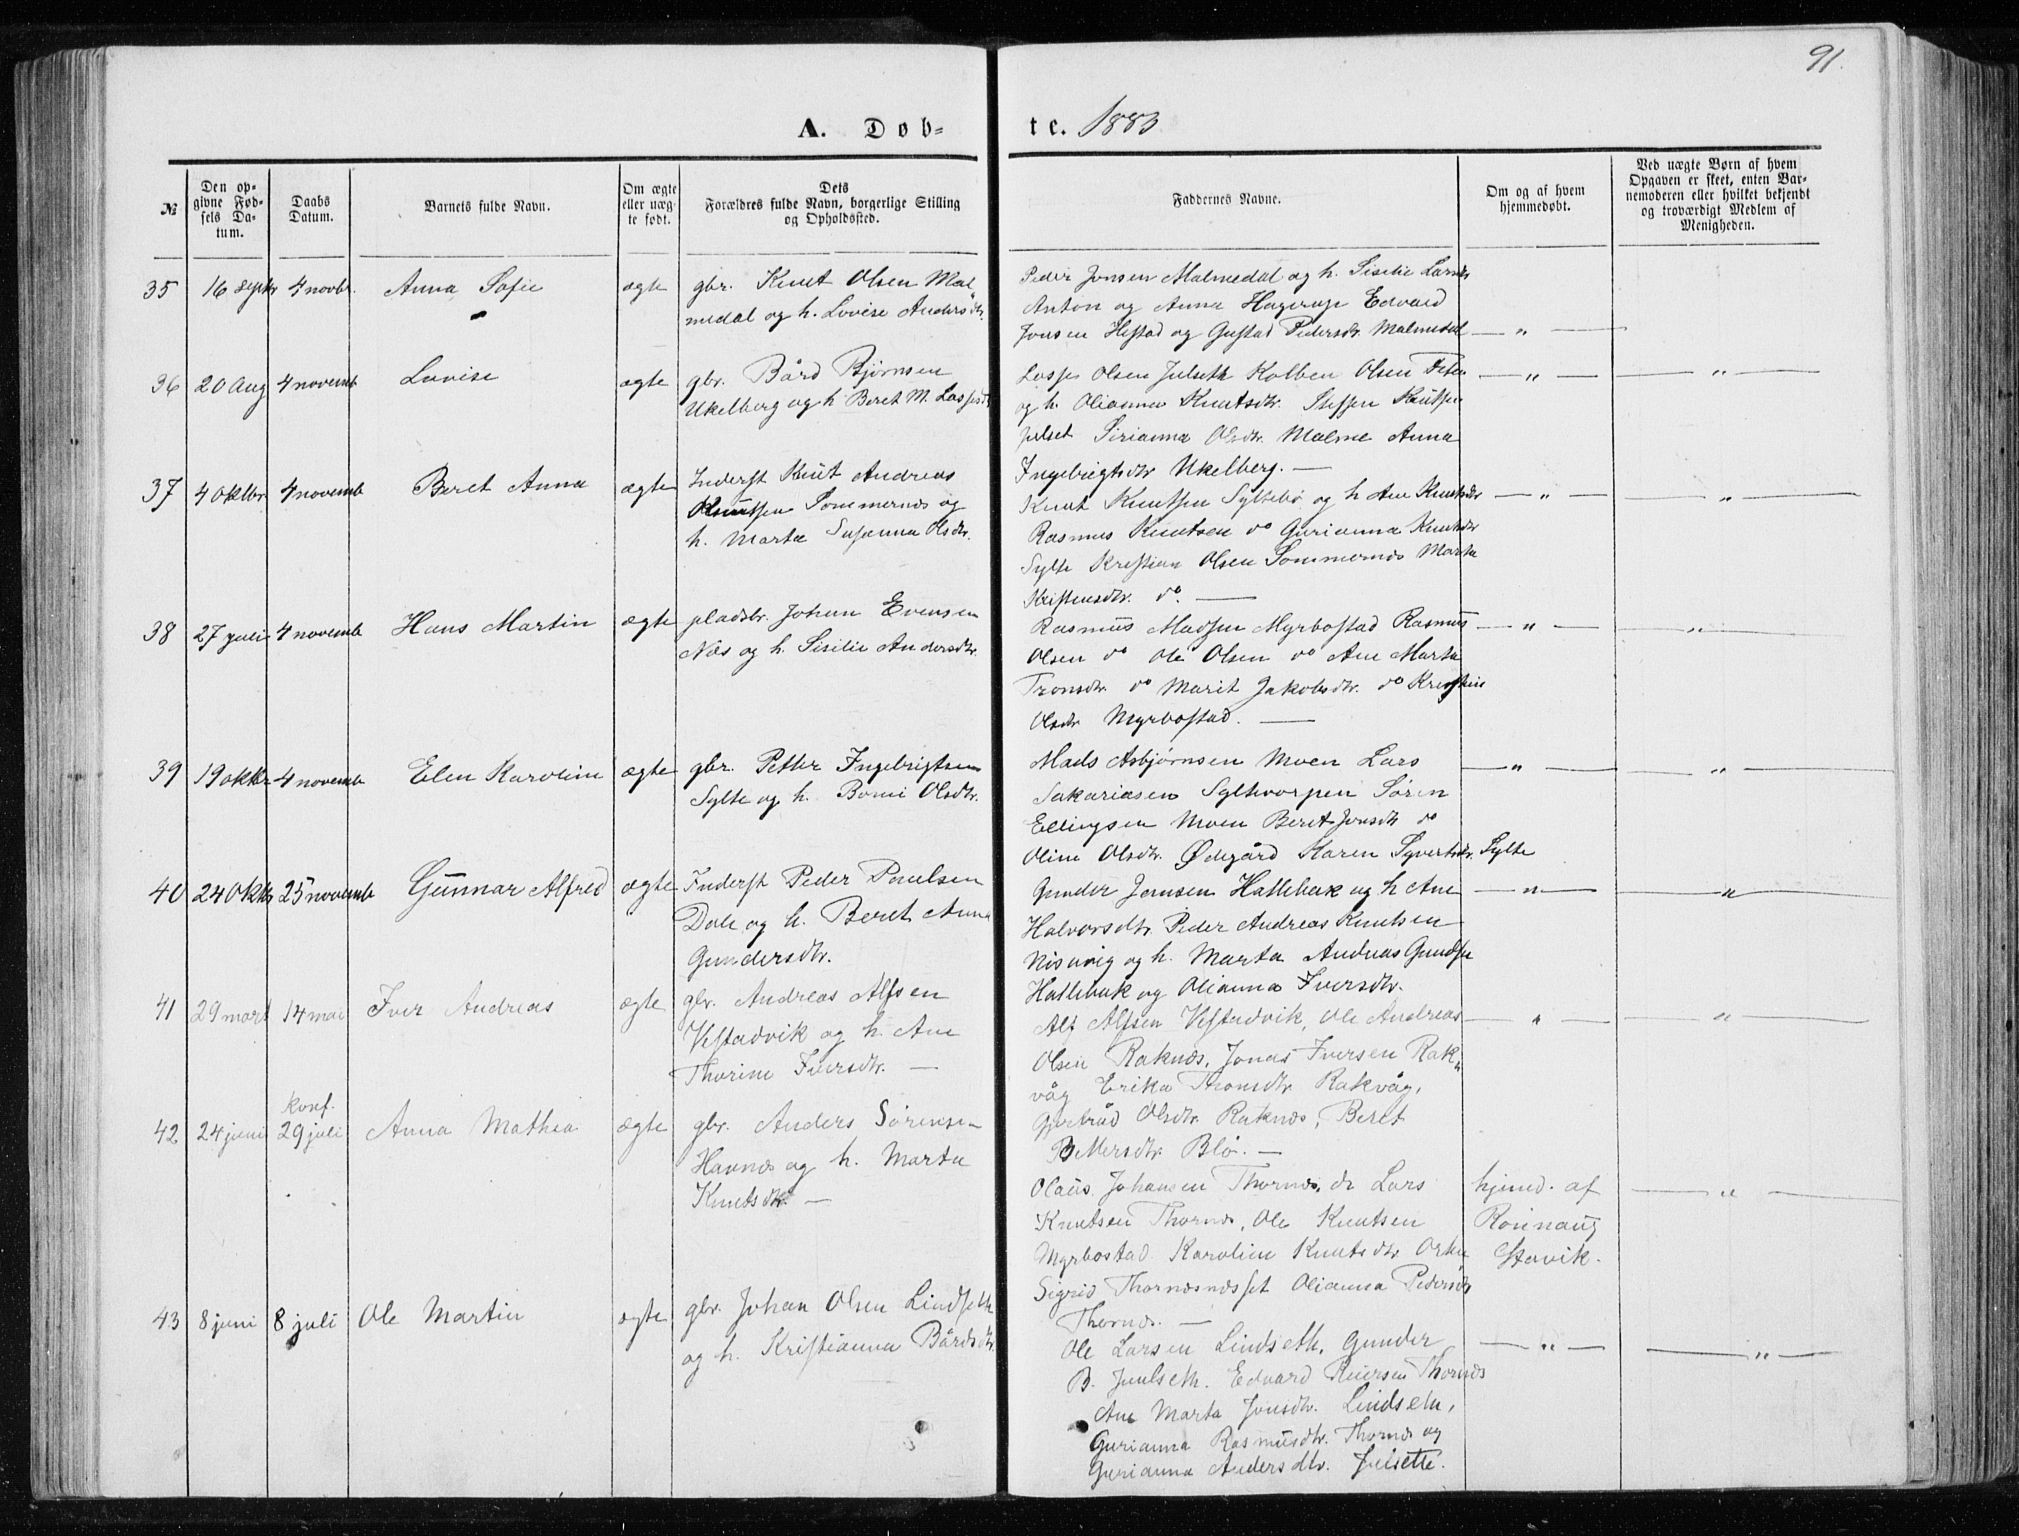 91.
A. Døb=
te. 1883
№
Den op=
givne Fød=
sels Da=
tum.
Daabs
Datum.
Barnets fulde Navn.
Om ægte
eller uæg=
te født.
Dets
Forældres fulde Navn, borgerlige Stilling
og Opholdssted.
Faddernes Navne.
Om og af hvem
hjemmedøbt.
Ved uægte Børn af hvem
Opgaven er skeet, enten Bar=
nemoderen eller hvilket bekjendt
og troværdigt Medlem af
Menigheden.
35 16 septr 4 novbr. Anna Sofie ægte gbr. Knut Olsen Mal=
medal og h. Lovise Andersdtr.
Peder Jonsen Malmedal og h. Sisilie Larsdtr
Anton og Anna Hagerup Edvard
Jonsen Hestad og Gustad Pedersdtr. Malmedal — " —
36 20 Aug 4 novemb Lovise ægte gbr. Bård Bjørnsen
Ukelberg og h Beret M. Lassesdtr
Lasse Olsen Julseth Kolben Olsen
og h. Olianna Knutsdtr. Steffen Knutsen
Julset Sirianna Olsdtr. Malme Anna
Ingebrigtsdtr Ukelberg. —
— " — — " —
37 4 oktbr. 4 novemb Beret Anna ægte Inderst Knut Andreas
Knutsen Sommernes og
h. Marta Susanna Olsdtr.
Knut Knutsen Syltebø og h Ane Knutsdtr
Rasmus Knutsen do Gurianna Knutsdtr
Sylte Kristian Olsen Sommernes Marta
Kristensdtr. do. —
— " — — " —
38 27 juli 4 novemb Hans Martin ægte pladsbr. Johan Evensen
Næs og h. Sisilie Andersdtr.
Rasmus Madsen Myrbostad Rasmus
Olsen do Ole Olsen do Ane Marta
Tronsdtr. do Marit Jakobsdtr. do Kristine
Olsdtr Myrbostad. —
— " — — " —
39 19 oktbr 4 novemb Elen Karoline ægte gbr. Petter Ingebrigtsen
Sylte og h. Olsdtr.
Mads Asbjørnsen Moen Lars
Sakariasen Syltevorpen Søren
Ellingsen Moen Beret Jonsdtr do
Oline Olsdtr. Ødegård Karen Syvertsdtr. Sylte
— " — — " —
40 24 Oktr 25 novemb Gunnar Alfred ægte Inderst Peder Paulsen
Dale og h. Beret Anna
Gundersdtr.
Gunder Jensen Hattebak og h Ane
Halvorsdtr. Peder Andreas Knutsen
Nisavig og h. Marta Andreas Gundsen
Hattebak og Olianna Iversdtr.
— " — — " —
41 29 mart 14 mai Iver Andreas ægte gbr. Andreas Alfsen
Vestadvik og h. Ane
Thorine Iversdtr. —
Alf Alfsen Vestadvik, Ole Andreas
Olsen Raknes, Jonas Iversen Rak=
våg Erika Tronsdtr Rakvåg,
Gjertrud Olsdtr. Raknes, Beret
Pettersdtr. Blø. —
— " — — " —
42 24 juni konf. 29 juli Anna Mathea ægte gbr. Anders Sørensen
Havnes og h. Marta
Knutsdtr. —
Olaus Johansen Thornes, Lars
Knutsen Thornes, Ole Knutsen
Myrbostad Karoline Knutsdtr
Sigrid Thornesnesset Olianna Pedersdtr
Thornes. —
hjemd. af
Rönnaug
Stavik.
— " —
43 8 juni 8 juli Ole Martin ægte gbr. Johan Olsen Lindseth
og h. Kristianna Bårdsdtr.
Ole Larsen Lindseth, Gunder
B. Juulseth. Edvard Thornes
Ane Marta Jonsdtr. Lindseth,
Gurianna Rasmusdtr. Thornes og
Gurianna Andersdtr. Julsette.
— " — — " —